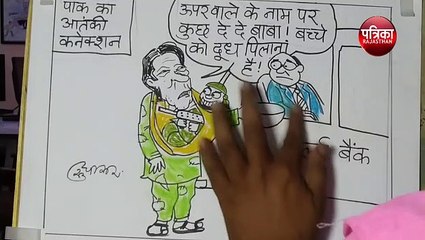 पाक का
आतंकी
कनेक्शन
ऊपर वाले के नाम पर
कुछ दे दे बाबा! बच्चे
को दूध पिलाना
है!
पत्रिका
RAJASTHAN
बैंक